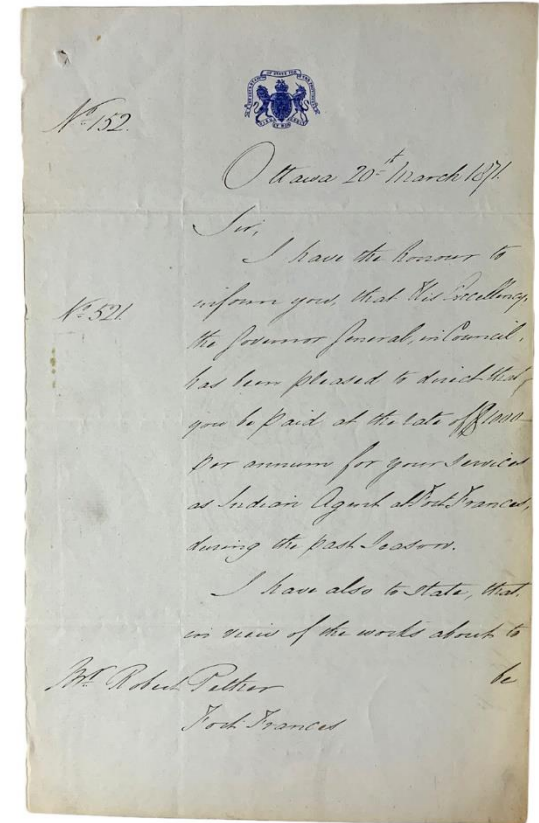 No. 152.
Ottawa 20st March 1871.
Sir,
I have the honour to
inform you, that His Excellency,
No. 521.
the Governor General, in Council,
has been pleased to direct that,
you be paid at the rate of $1000
per annum for your services
as Indian Agent at Fort Frances,
during the past Season.
I have also to state, that,
in view of the works about to
be
Mr. Robert Pether
Fort Frances